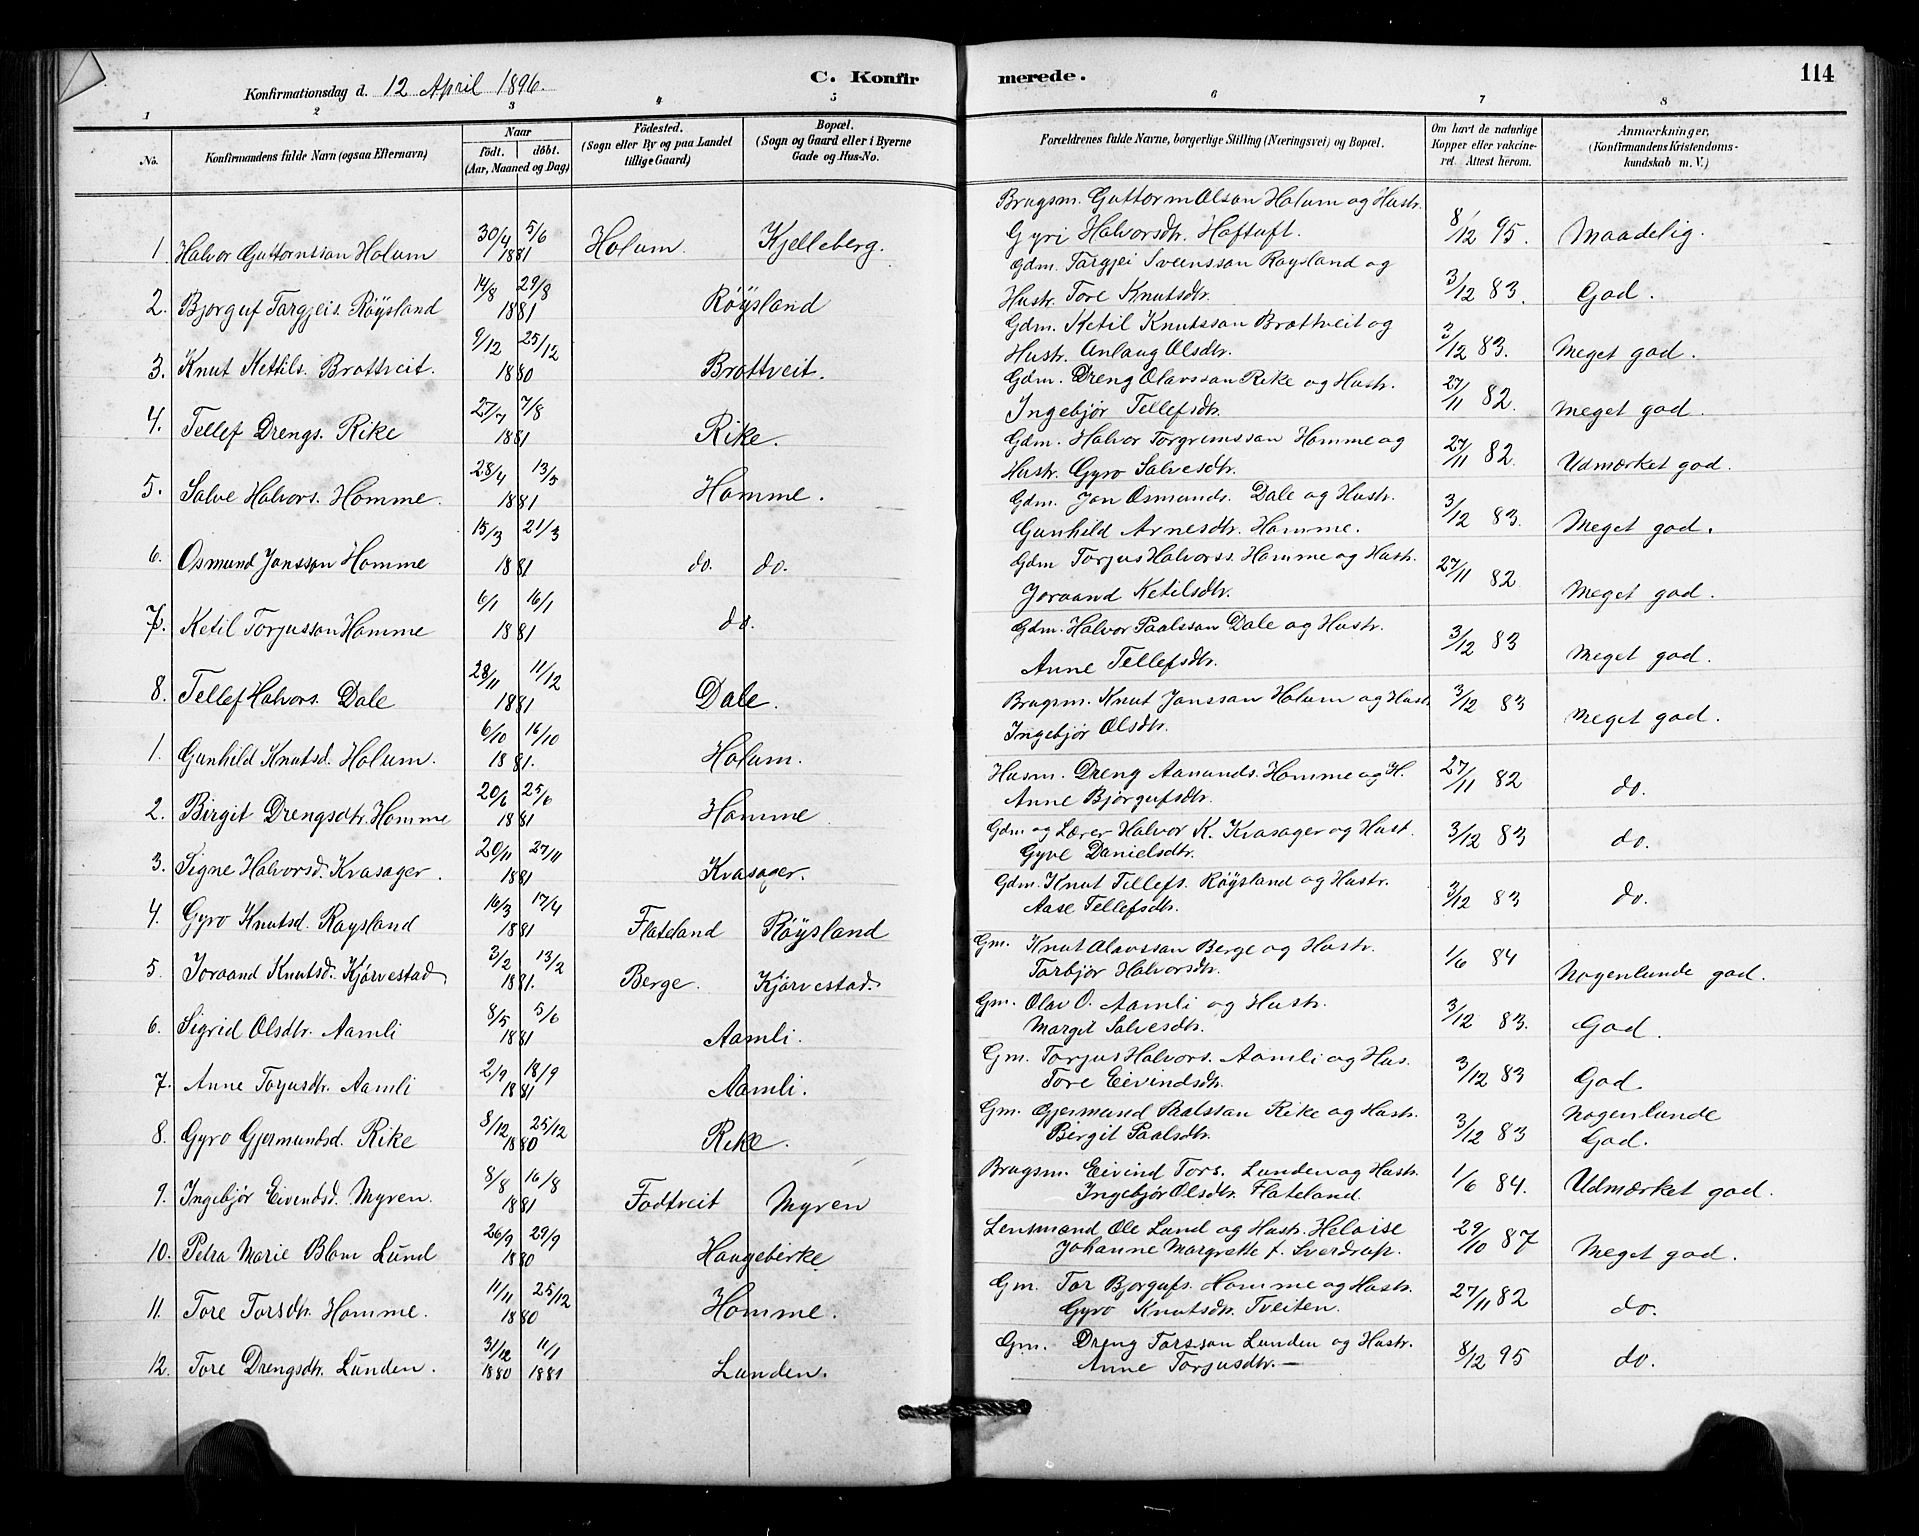 Konfirmationsdag d. 12 April 1896.
C. Konfirmerede.
114
1 2 3 4 5 6 7 8
No.
Konfirmandens fulde Navn (ogsaa Efternavn)
Naar
födt. döbt.
(Aar, Maaned og Dag)
Födested.
(Sogn eller By og paa Landet
tillige Gaard)
Bopæl.
(Sogn og Gaard eller i Byerne
Gade og Hus-No.
Forældrenes fulde Navne, borgerlige Stilling (Næringsvei) og Bopæl.
Om havt de naturlige
Kopper eller vakcineret. Attest herom.
Anmærkninger,
(Konfirmandens Kristendomskundskab m. V.)
1. Halvor Guttormsson Holum 30/4 1881 5/6 Holum. Kjelleberg. Brugsm. Guttorm Olson Holum og Hustr. Gyri Halvorsdtr. Haftuft. 8/12 95. Maadelig.
2. Bjorguf Targjeis. Röysland 14/8 29/8 1881 Röysland Gdm. Targjei Svensson Raysland og Hustr. Tore Knutsdtr. 3/12 83. God.
3. Knut Kettils. Brottveit. 9/12 25/12 1880 Brottveit. Gdm. Ketil Knutsson Brottveit og Hustr. Anlaug Olsdtr. 3/12 83. Meget god.
4. Tellef Drengs. Rike 27/7 7/8 1881 Rike. Gdm. Dreng Olavsson Rike og Hustr. Ingebjør Tellefsdtr. 27/11 82. Meget god.
5. Salve Halvors. Homme. 28/4 13/5 1881 Homme. Gdm. Halvor Torgrimsson Homme og Hustr. Gyro Salvesdtr. 27/11 82. Udmærket god.
6. Osmund Jonsson Homme 15/3 21/3 1881 do. do. Gdm. Jon Osmunds. Dale og Hustr. Gunhild Arnesdtr. Homme. 3/12 83. Meget god.
7. Ketil Torjusson Homme 6/1 16/1 1881 do. Gdm Torjus Halvorss. Homme og Hustr. Joraand Ketilsdtr. 27/11 82 Meget god.
8. Tellef Halvors. Dale 28/11 11/12 1881 Dale. Gdm. Halvor Paalsson Dale og Hustr. Anne Tellefsdtr. 3/12 83 Meget god.
1. Gunhild Knutsd. Holum. 6/10 16/10 1881. Holum. Brugsm. Knut Jonsson Holum og Hustr Ingebjør Olsdtr. 3/12 83 Meget god.
2. Birgit Drengsdtr. Homme 20/6 25/6 1881 Homme. Husm. Dreng Aanunds. Homme og H. Anne Bjorgufsdtr. 27/11 82 do.
3. Signe Halvorsd. Kvasager. 20/11 27/11 1881 Kvasager. Gdm og Lærer Halvor K. Kvasager og Hust. Gyve Danielsdtr. 3/12 83 do.
4. Gyro Knutsd. Raysland 16/3 17/4 1881 Flateland Röysland Gdm. Knut Tellefs. Röysland og Hustr. Aase Tellefsdtr. 3/12 83 do.
5. Joraand Knutsd. Kjørvestad 3/2 13/2 1881. Berge. Kjørvestad. Gm. Knut Olavsson Berge og Hustr. Torbjør Halvorsdtr. 1/6 84 Nogenlunde god.
6. Sigrid Olsdtr. Aamli 8/5 5/6 1881 Aamli. Gm. Olav O. Aamli og Hustr. Margit Salvesdtr. 3/12 83. God.
7. Anne Torjusdtr. Aamli 2/9 18/9 1881 Aamli. Gm. Torjus Halvors. Aamli og Hus. Tore Eivindsdtr. 3/12 83 God.
8. Gyro Gjermundsd. Rike 8/12 25/12 1880 Rike. Gm. Gjermund Paalsson Rike og Hustr. Birgit Paalsdtr. 3/12 83 Nogenlunde God.
9. Ingebjør Eivendsd. Myren. 8/8 16/8 1881 Fodtveit Myren Brugsm. Eivind Tors. Lunden og Hustr. Ingebjør Olsdtr. Flateland. 1/6 84. Udmærket god.
10. Petra Marie Blom Lund 26/9 29/9 1880 Haugebirke Lensmænd Ole Lund og Hustr. Heloise Johanne Margrette f. Sverdrup. 29/10 87 Meget god.
11. Tore Torsdtr. Homme. 11/11 25/12 1880 Homme. Gm. Tor Bjorgufs. Homme og Hustr. Gyro Knutsdtr. Tveiten. 27/11 82 do.
12. Tore Drengsdtr. Lunden. 31/12 1880 11/1 1881 Lunden. Gm. Dreng Torsson Lunden og Hustr. Anne Torjusdtr. — 8/12 95 do.